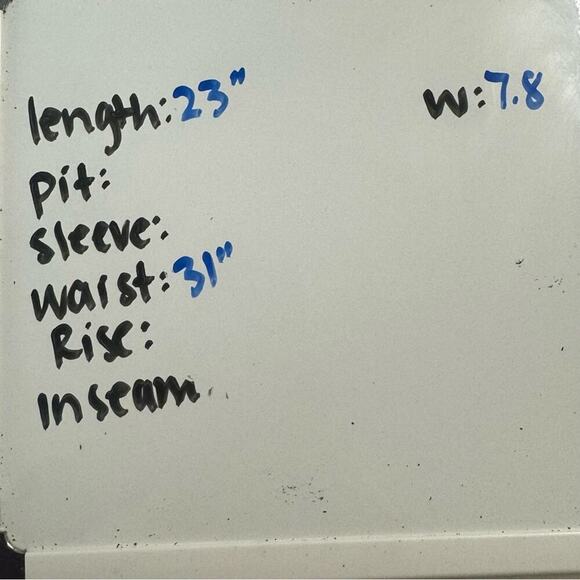 length: 23"
w: 7.8
pit:
sleeve:
waist: 31"
Rise:
Inseam